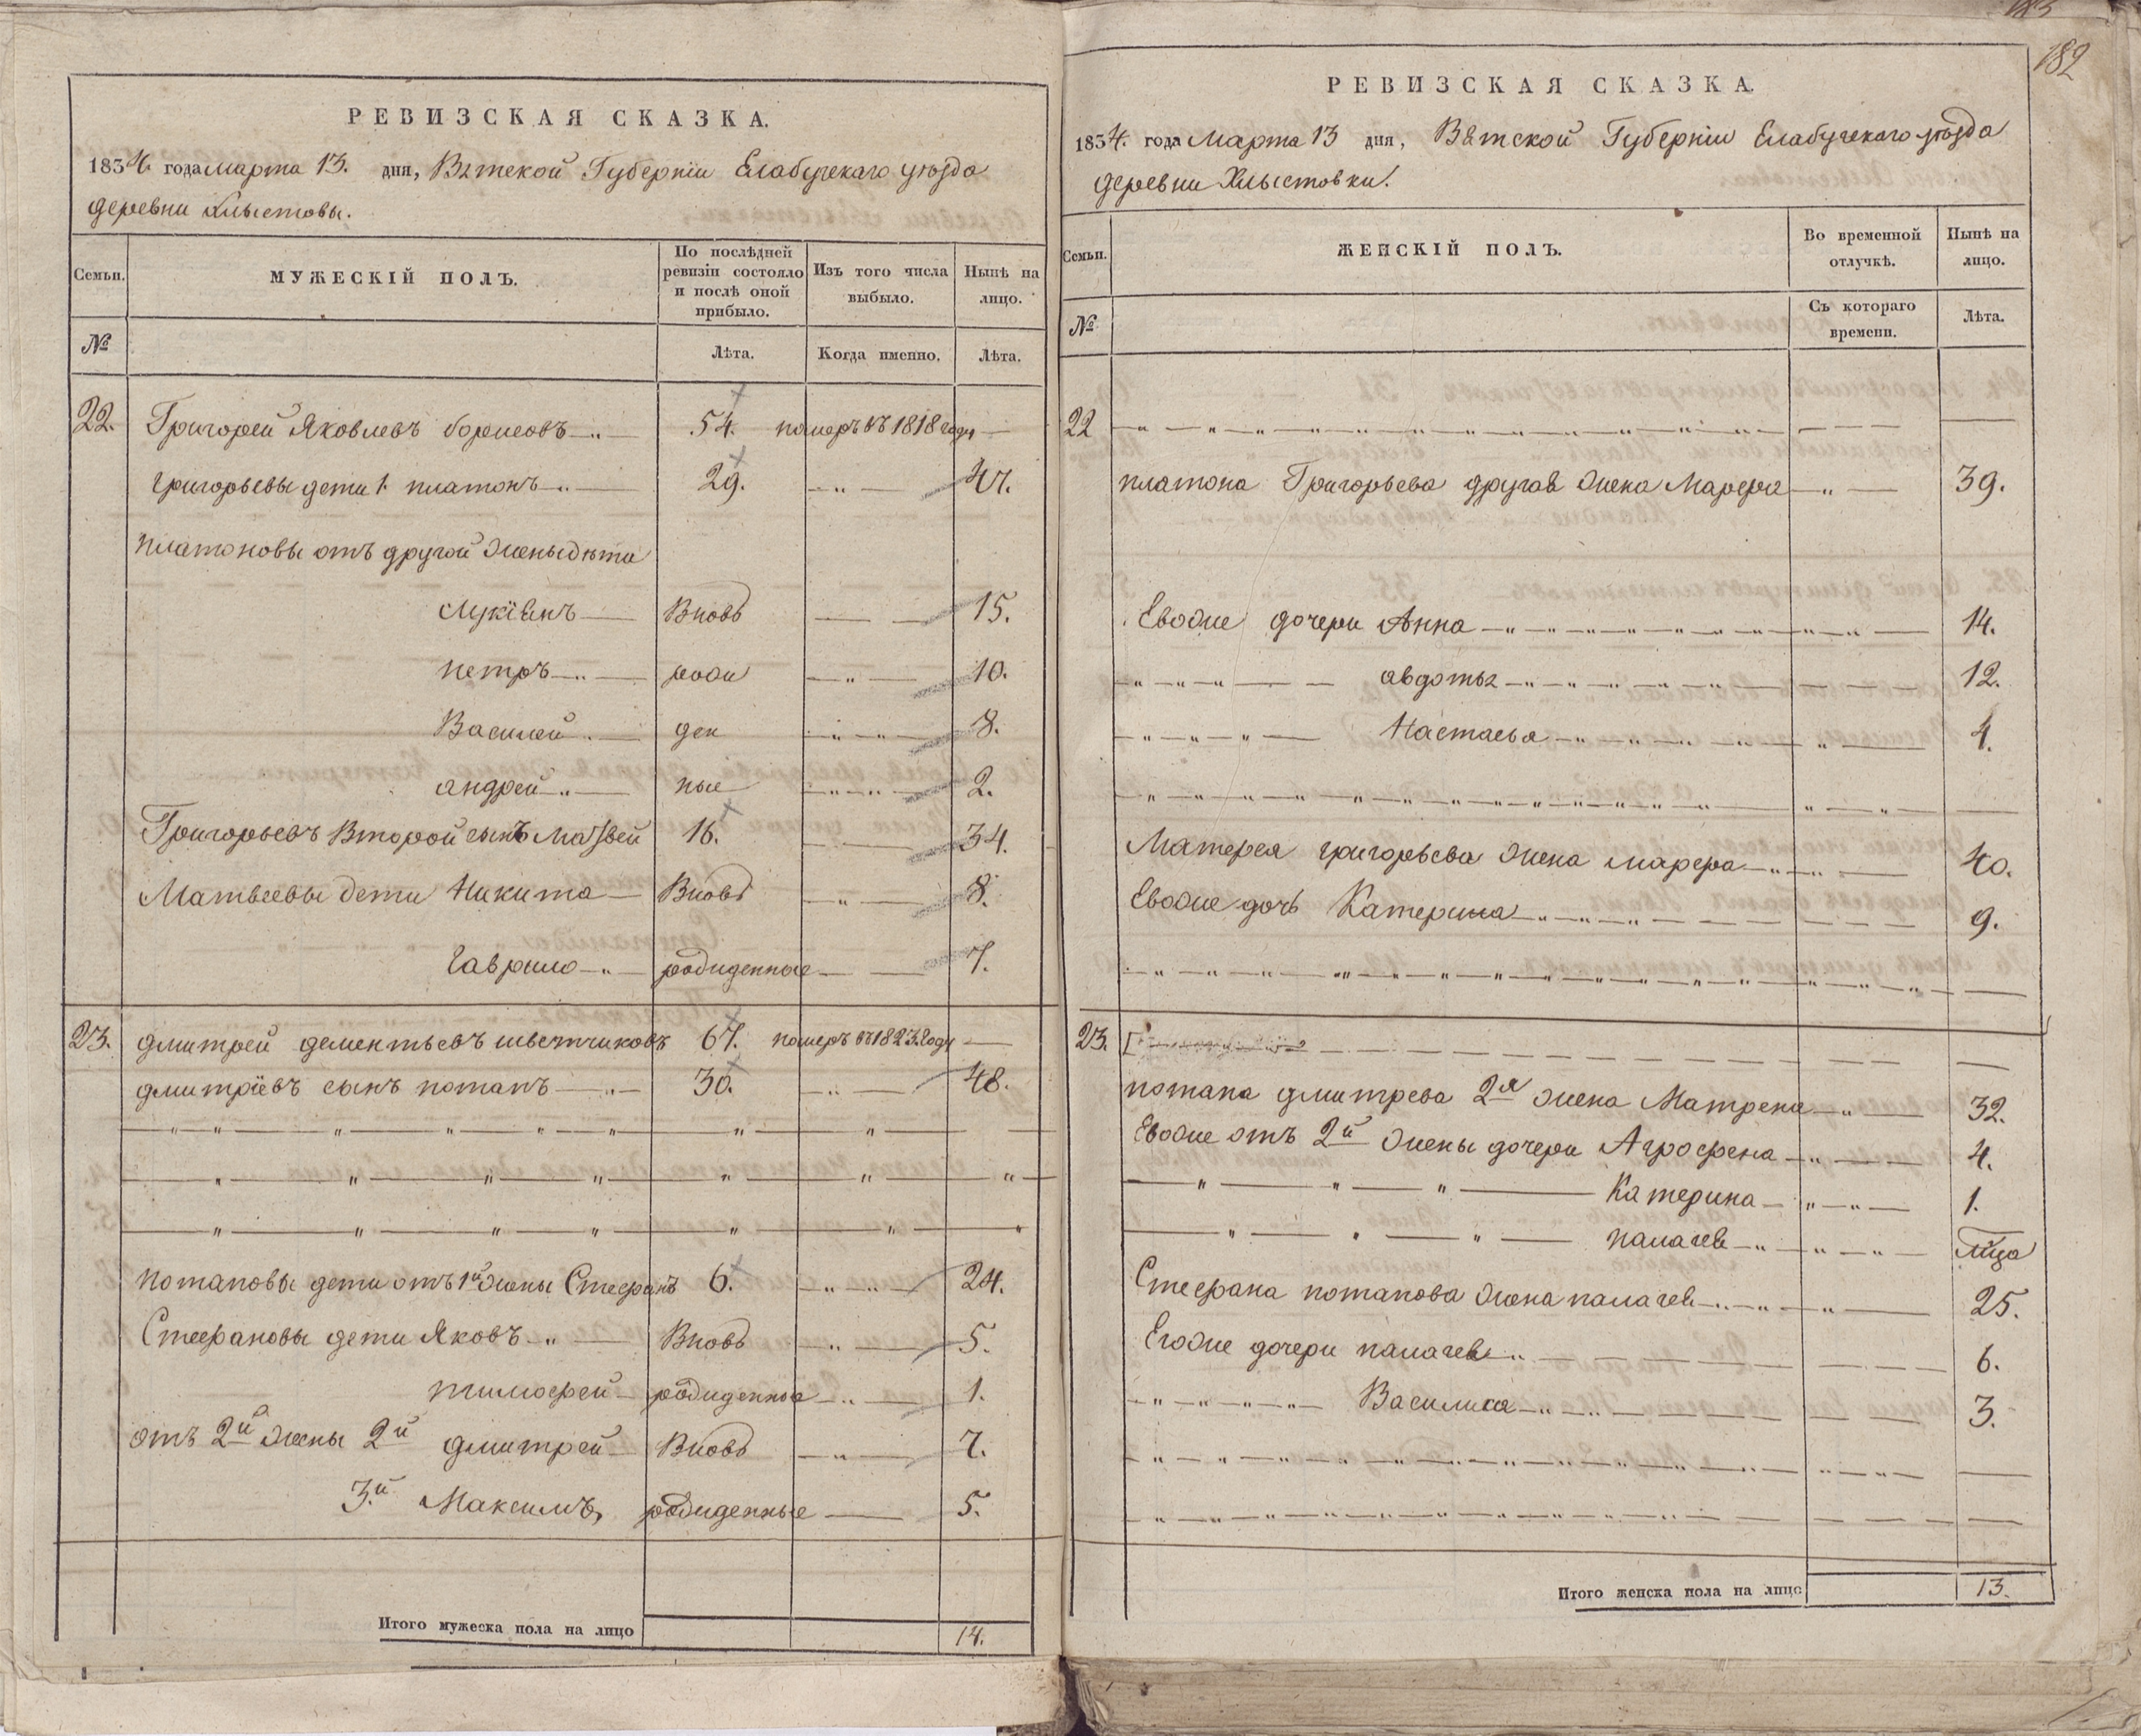 РЕВИЗСКАЯ СКАЗКА.
1834. года марта 13. дня, Вятской Губерніи Елабугскаго уѣзда
деревни Хлыстовы.
Семьи. МУЖЕСКІЙ ПОЛЪ. По послѣдней ревизіи состояло и послѣ оной прибыло. Изъ того числа выбыло. Нынѣ на лицо.
№ Лѣта. Когда именно. Лѣта.
22. Григорей Яковлевъ борисовъ 54. померъ въ 1818 году
григорьевы дети 1. платонъ 29. 47.
платоновы отъ другой жены дѣти
Лукіянъ Вновь 15.
петръ рожи 10.
Василей ден 8.
андрей ные 2.
Григорьевъ Второй сынъ Матвей 16. 34.
Матвеевы дети Никита Вновь 8.
Гаврило рожденные 7.
23. дмитрей дементьевъ шветчиковъ 67. померъ в 1823 году
дмитріевъ сынъ потапъ 30. 48.
потаповы дети отъ 1й жены Стефанъ 6. 24.
Стефановы дети Яковъ Вновь 5.
тимофей рожденные 1.
отъ 2й жены 2й дмитрей Вновь 7.
3.й Максимъ, рожденные 5.
Итого мужеска пола на лицо 14.
182
РЕВИЗСКАЯ СКАЗКА.
1834. года Марта 13 дня, Вятской Губерніи Елабугскаго уѣзда
деревни Хлыстовки.
Семьи. ЖЕНСКІЙ ПОЛЪ. Во временной отлучкѣ. Нынѣ на лицо.
№ Съ котораго времени. Лѣта.
22
платона Григорьева другая жена Марфа 39.
Евожие дочери Анна 14.
авдотья 12.
Настасья 4.
Матфея григорьева жена марфа 40.
Евожие дочь Катерина 9.
23.
потапа дмитрева 2я жена Матрена 32.
Евожие отъ 2й жены дочери Агрофена 4.
Катерина 1.
палагея
Стефана потапова жена палагея 25.
Егожие дочери палагея 6.
Василиса 3.
Итого женска пола на лицо 13.